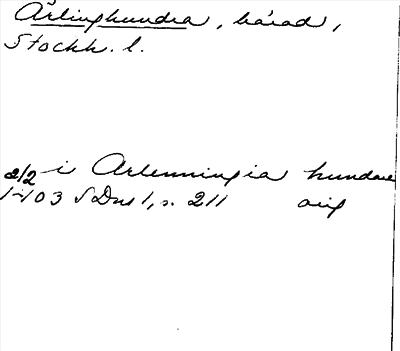 Ärlinghundra, härad,
Stockh. l.
2/2 i Arlenningia hundare
1403 SDns 1, s. 211 orig